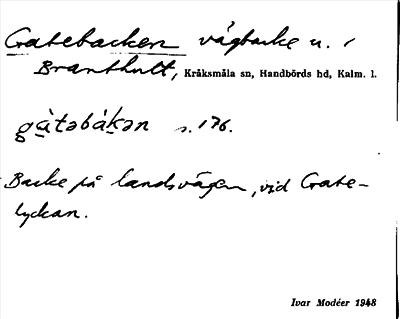 Gatebacken vägbacke u. /
Branthult, Kråksmåla sn, Handbörds hd, Kalm. l.
gàtəbàkən s. 176.
Backe på landsvägen, vid Gate-
lyckan.
Ivar Modéer 1948